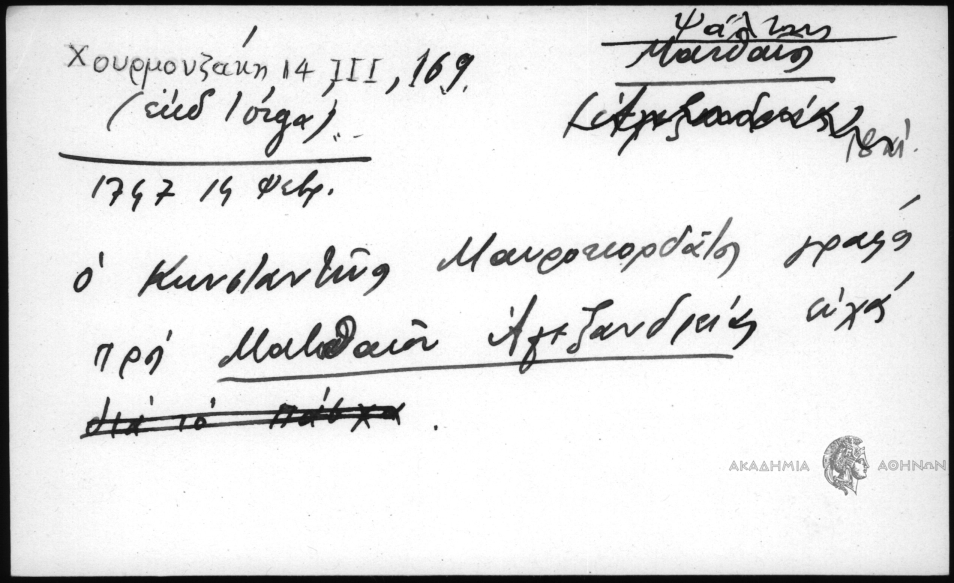 Χουρμουζάκη 14 III, 169.
(ἐκδ Ἰόργα)
Ψάλτης
Ματθαῖος
1747 14 Φεβρ.
ὁ Κωνσταντῖνος Μαυροκορδᾶτος γράφει
πρὸς Ματθαῖον Ἀλεξανδρείας εὐχάς
διὰ τὸ πάσχα.
ΑΚΑΔΗΜΙΑ ΑΘΗΝΩΝ